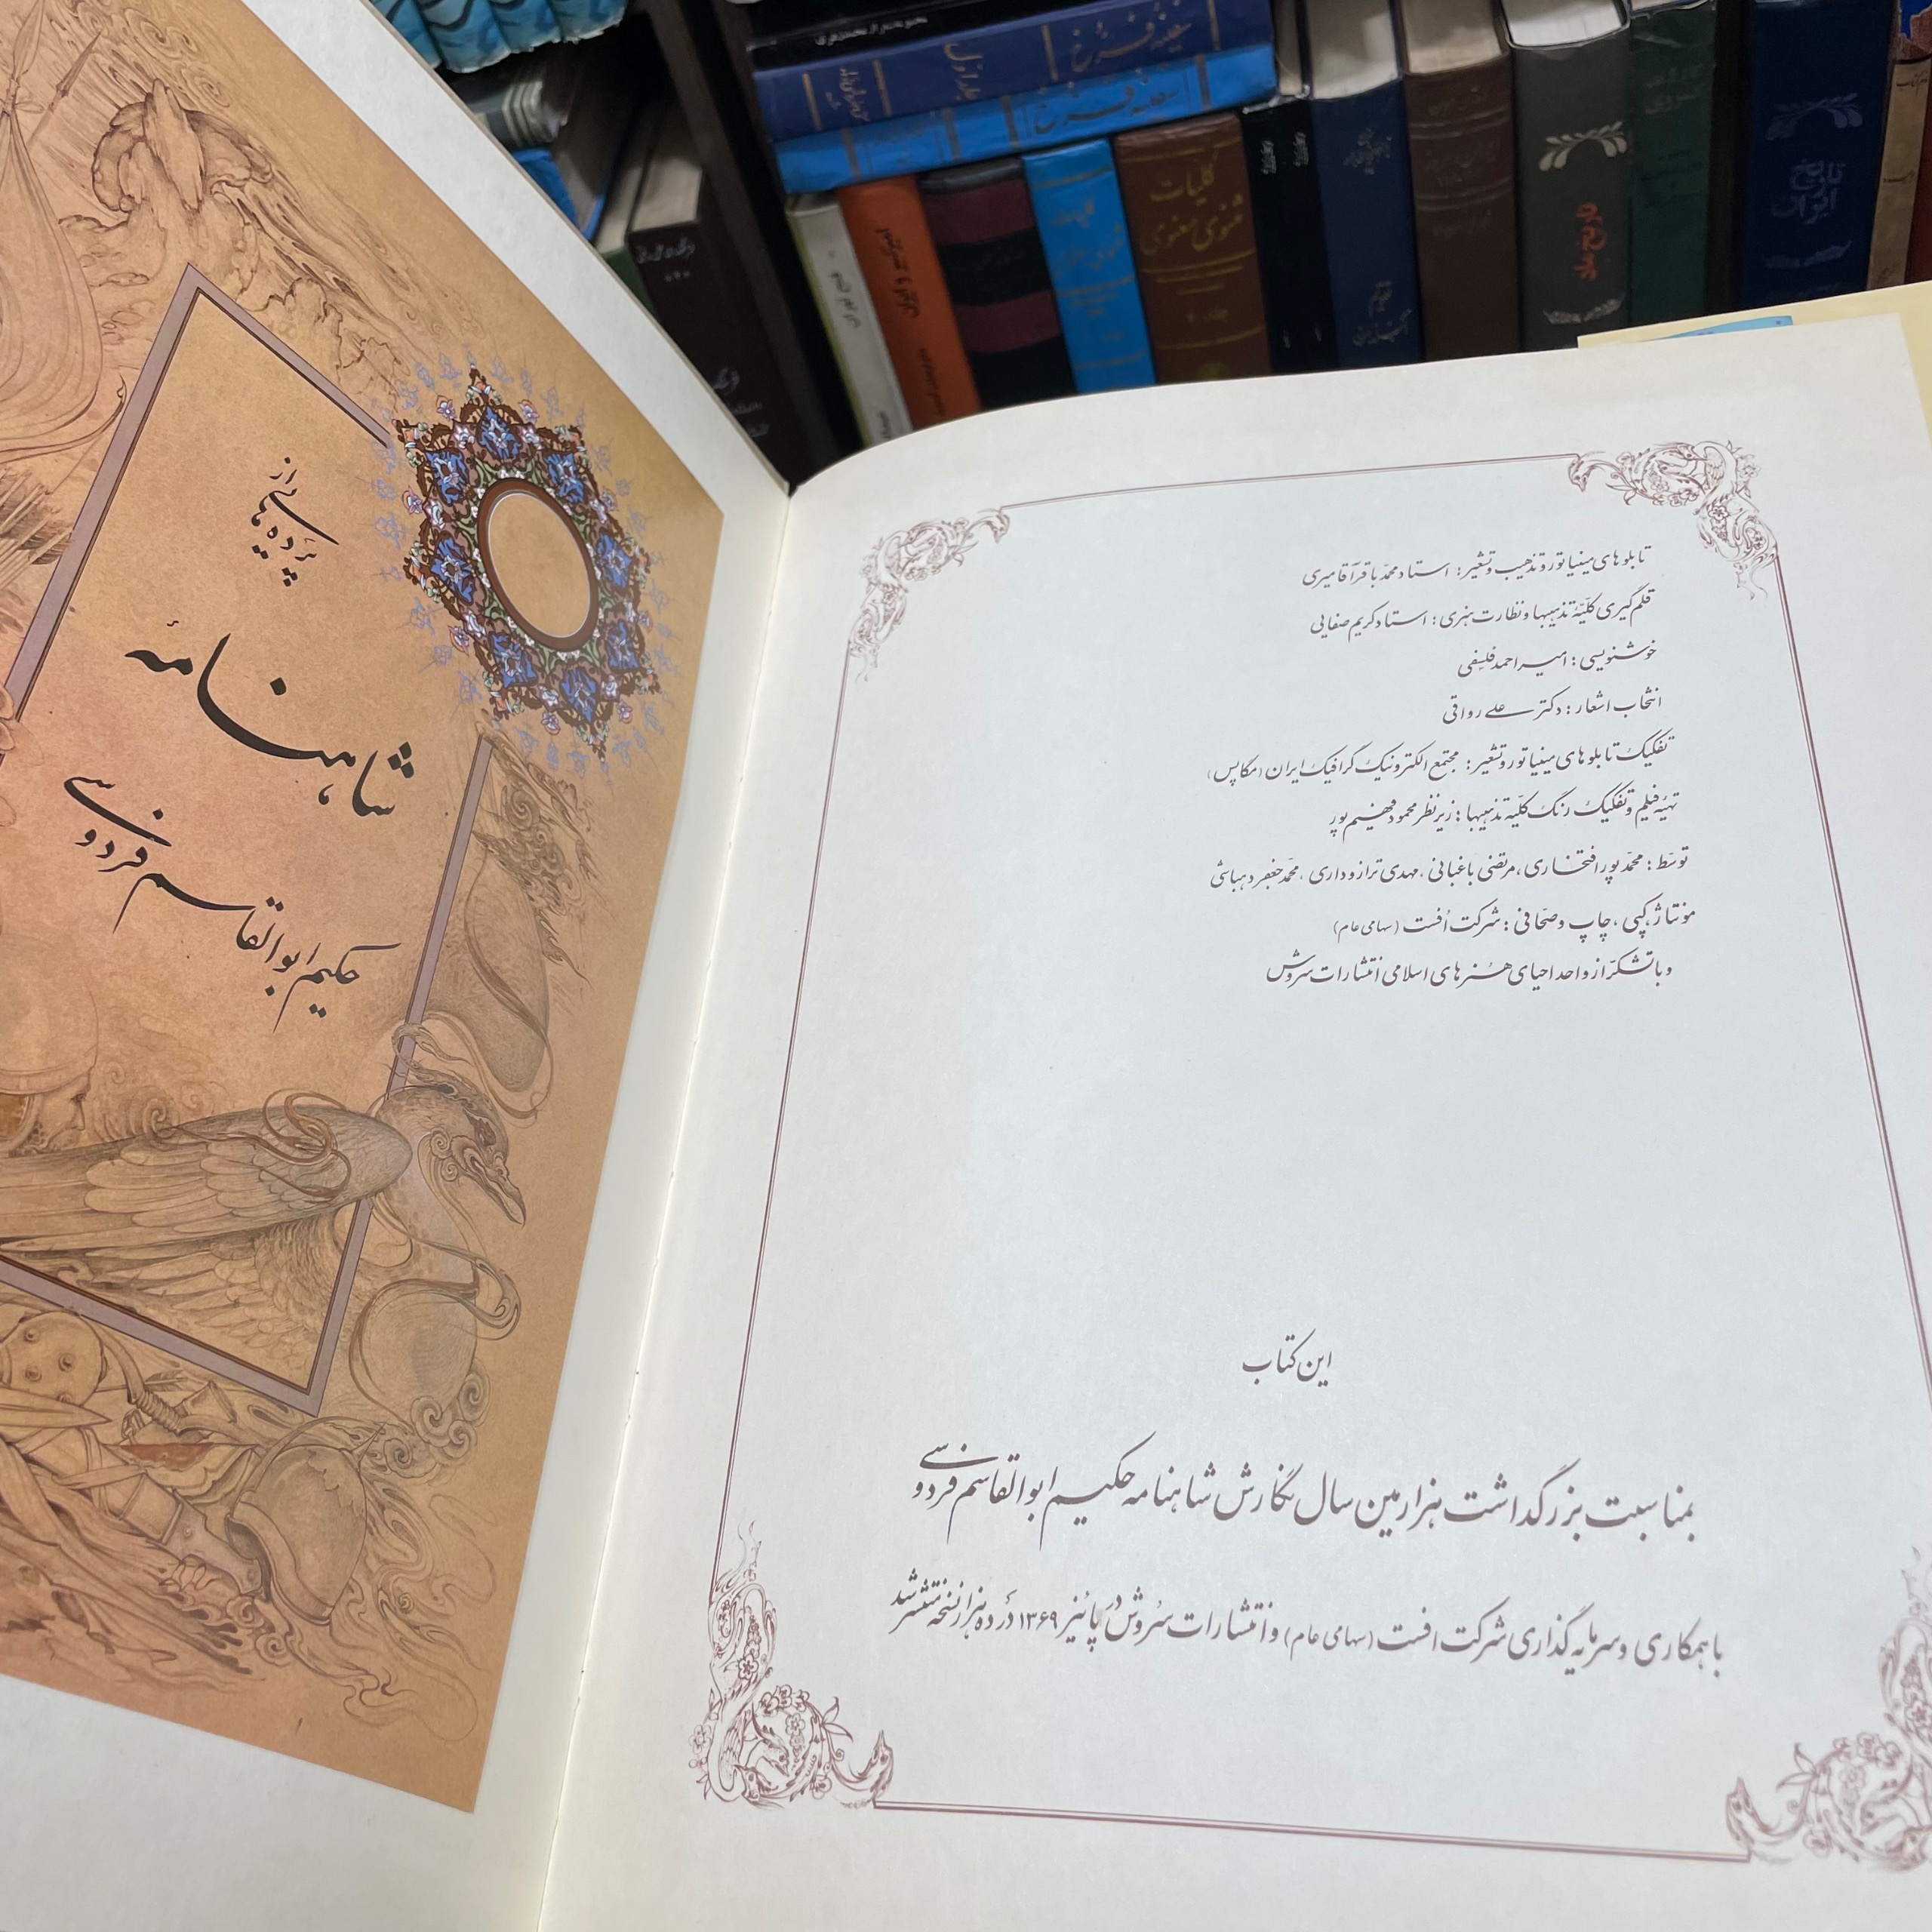 پرده‌هایی از
شاهنامهٔ
حکیم ابوالقاسم فردوسی
تابلوهای مینیاتور و تذهیب و تشعیر: استاد محمد باقر آقامیری
قلم‌گیری کلیّهٔ تذهیبها و نظارت هنری: استاد کریم صفایی
خوشنویسی: امیر احمد فلسفی
انتخاب اشعار: دکتر علی رواقی
تفکیک تابلوهای مینیاتور و تشعیر: مجتمع الکترونیک گرافیک ایران (مگاپس)
تهیهٔ فیلم و تفکیک رنگ کلیّهٔ تذهیبها: زیر نظر محمود فهیم پور
توسّط: محمّد پورافتخاری، مرتضی باغبانی، مهدی ترازوداری، محمّد جعفر دهباشی
مونتاژ، کپی، چاپ و صحّافی: شرکت اُفست (سهامی عام)
و با تشکّر از واحد احیای هنرهای اسلامی انتشارات سروش
این کتاب
بمناسبت بزرگداشت هزارمین سال نگارش شاهنامه حکیم ابوالقاسم فردوسی
با همکاری و سرمایه گذاری شرکت افست (سهامی عام) و انتشارات سروش در پائیز ۱۳۶۹ در ده هزار نسخه منتشر شد
سفینهٔ فرّخ
جلد اول
سفینهٔ فرّخ
کلیات
مثنوی معنوی
جلد ۲
کلیات
تاریخ ماد
تاریخ
ایران